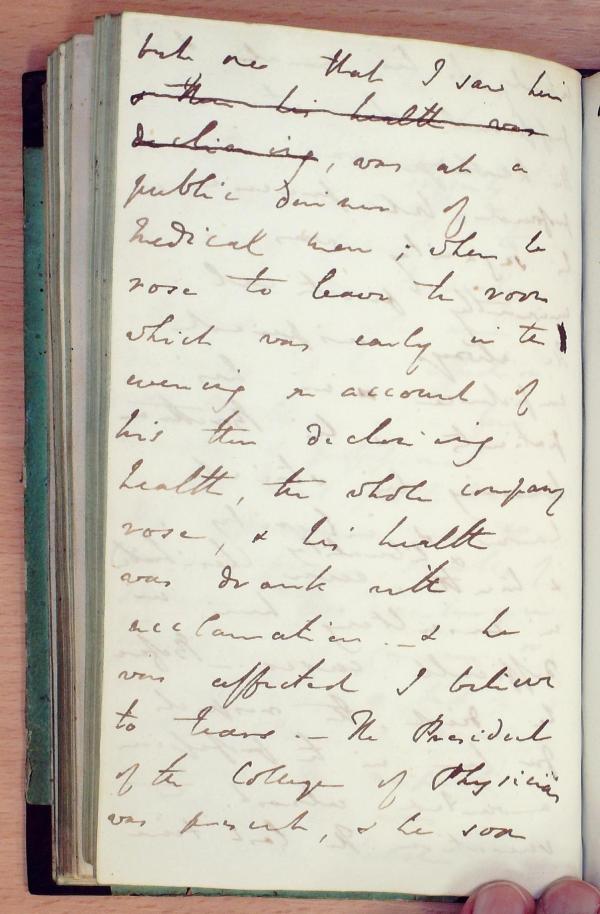 but one that I saw him
& then his health was
declining, was at a
public dinner of
Medical men; when he
rose to leave the room
which was early in the
evening on account of
his then declining
health, the whole company
rose, & his health
was drank with
acclamation – & he
was affected I believe
to tears. – The President
of the College of Physicians
was present, & he soon